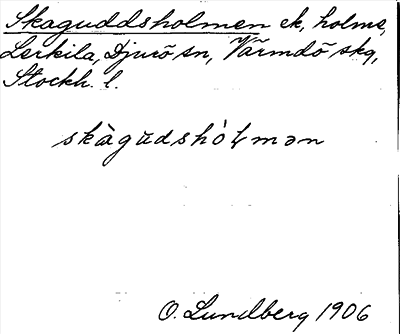 Skaguddsholmen ek, holme,
Lerkila, Djurö sn, Värmdö skg,
Stockh. l.
skàgu̇dshòⱡmən
O. Lundberg 1906